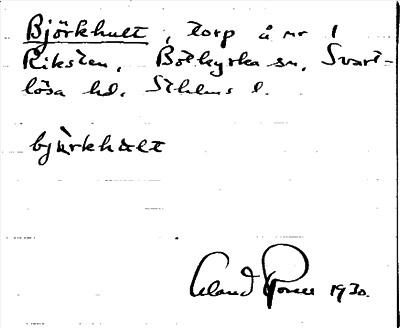 Björkhult, torp å nr 1
Riksten, Botkyrka sn, Svart-
lösa hd. Sthlms l.
bjùrkhɷlt
1930.